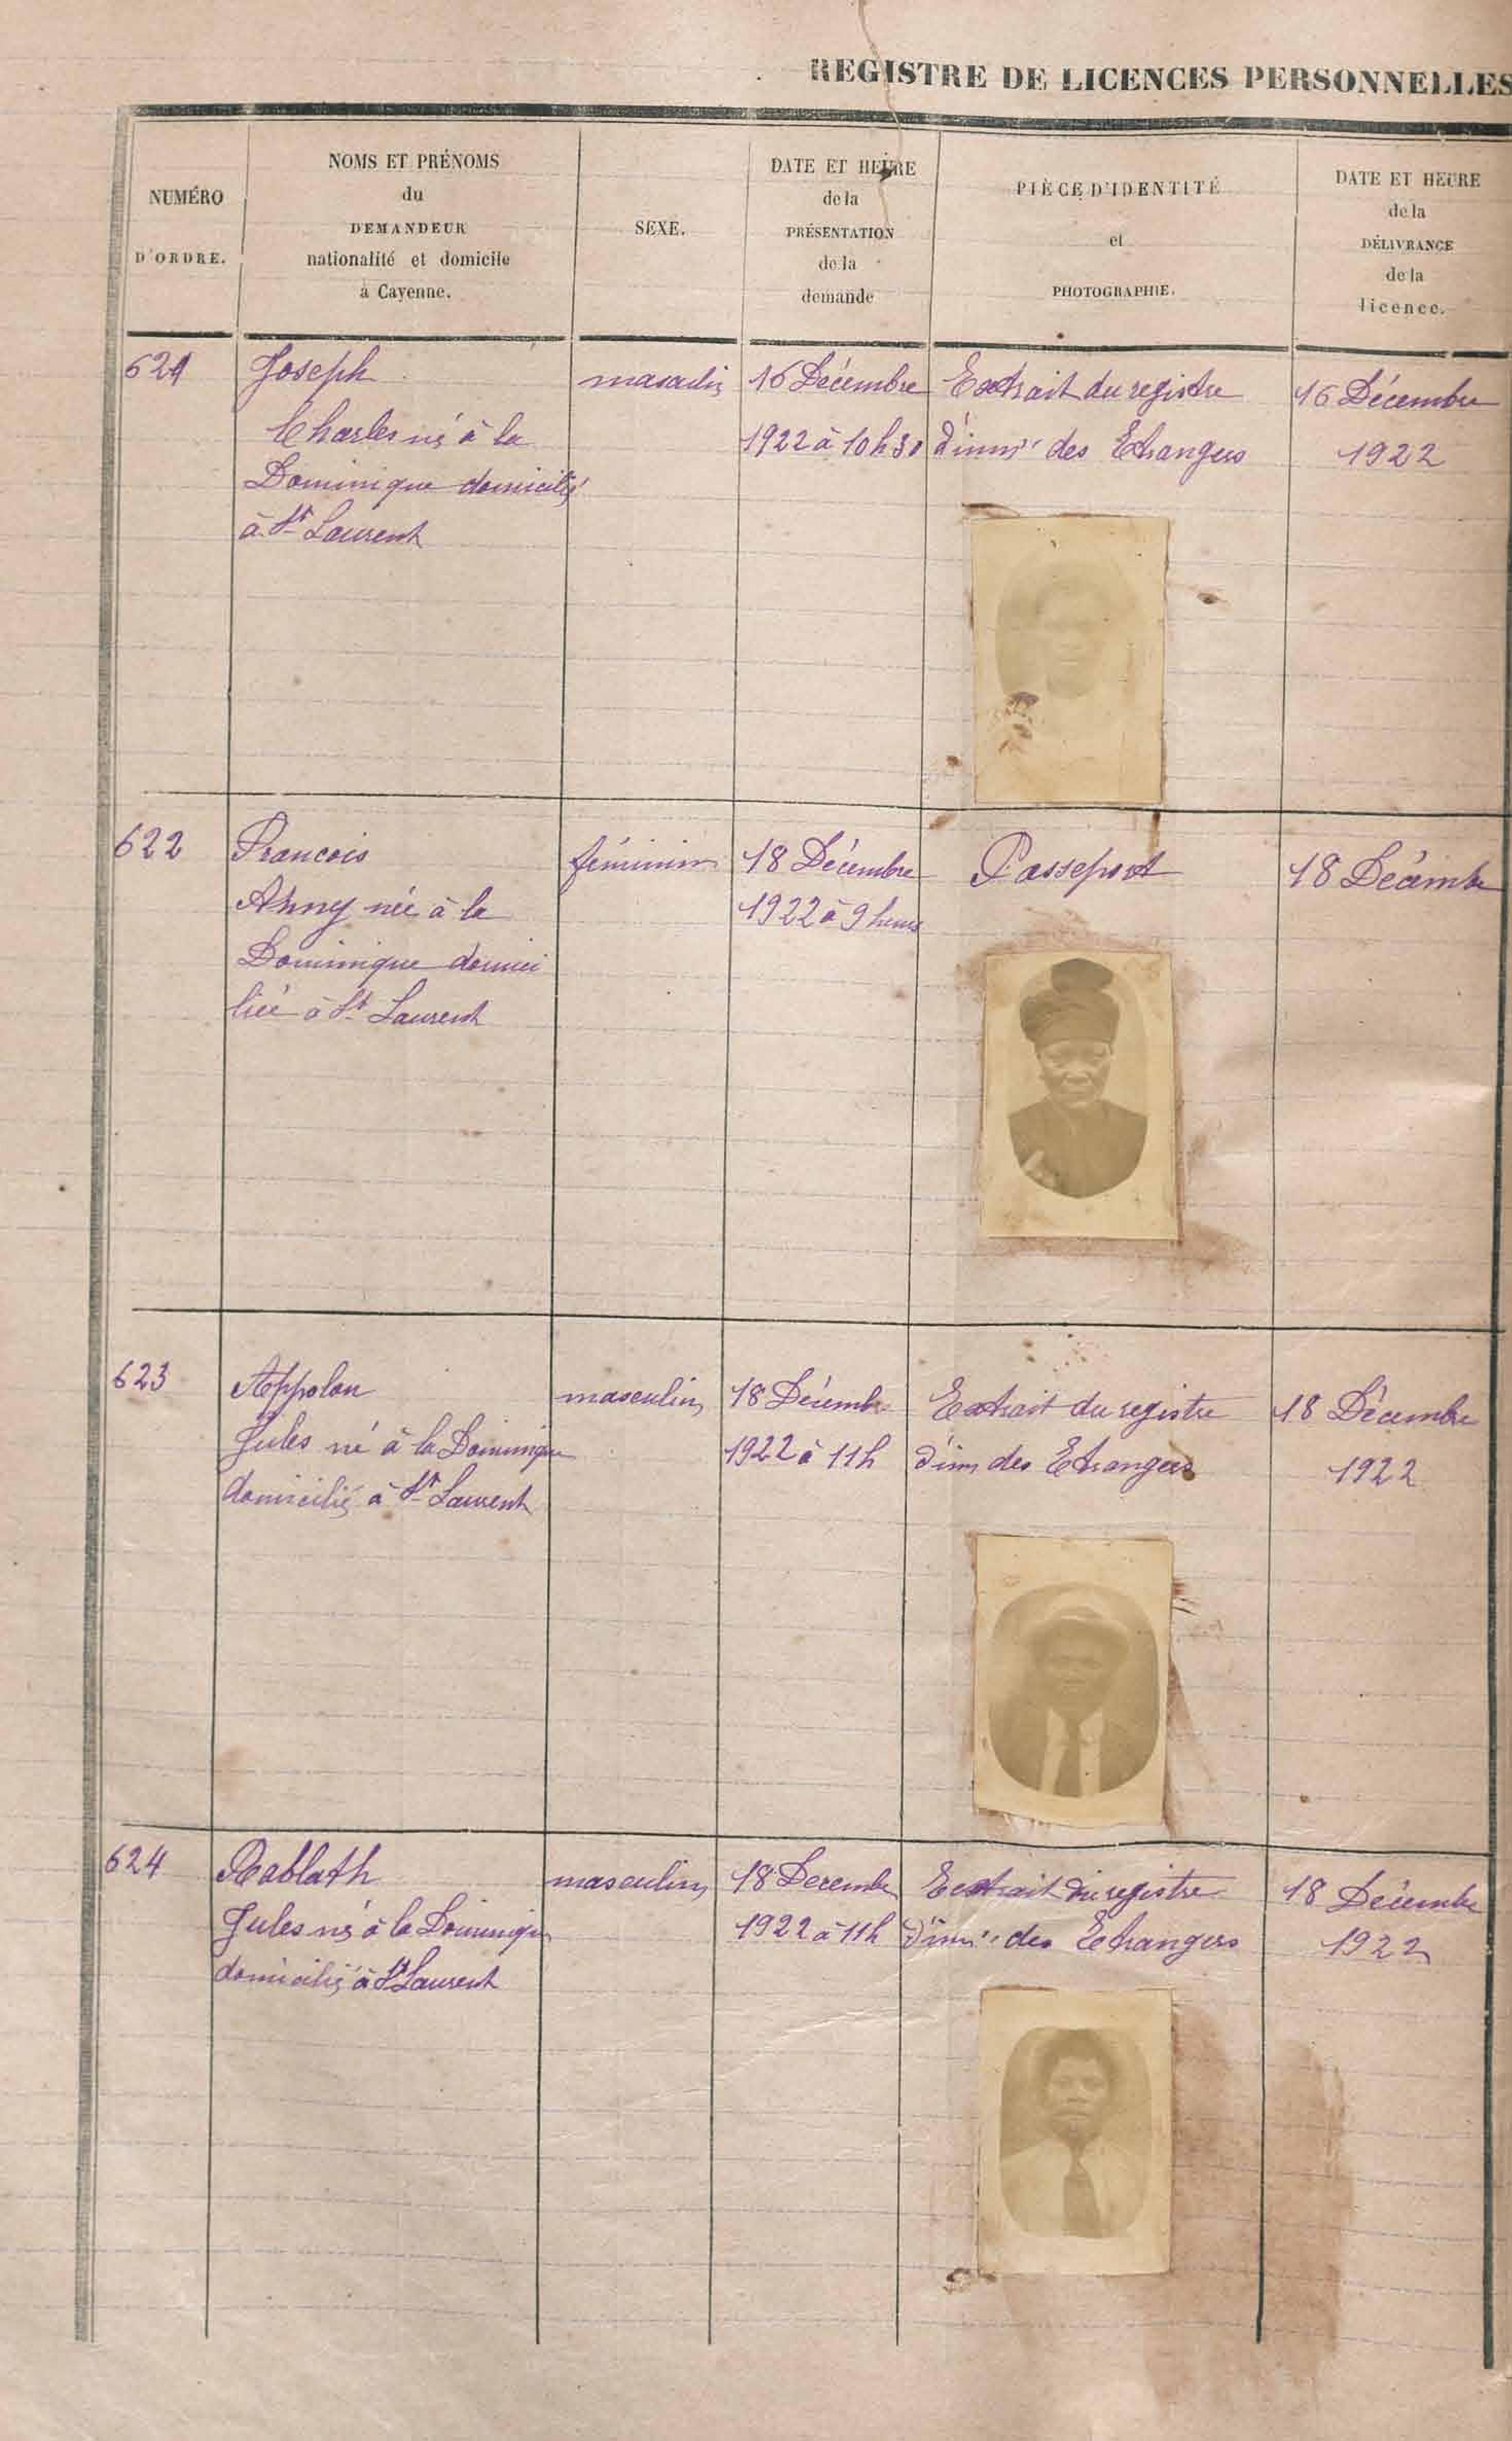 REGISTRE DE LICENCES PERSONNELLES
NUMÉRO
D'ORDRE.
NOMS ET PRÉNOMS
du
DEMANDEUR
nationalité et domicile
à Cayenne.
SEXE.
DATE ET HEURE
de la
PRÉSENTATION
de la
demande
PIÈCE D'IDENTITÉ
et
PHOTOGRAPHIE.
DATE ET HEURE
de la
DÉLIVRANCE
de la
licence.
621
Joseph
Charles né à la
Dominique domicilié
à St Laurent
masculin
16 Décembre
1922 à 10 h 30
Extrait du registre
des Etrangers
16 Décembre
1922
622
Francois
Anny née à la
Dominique domici
liée à St Laurent
féminin
18 Décembre
1922 à 9 heures
Passeport
18 Décembre
623
Appolon
Jules né à la Dominique
domicilié à St Laurent
masculin
18 Décembre
1922 à 11h
Extrait du registre
d'im des Etrangers
18 Décembre
1922
624
Jules né à la Dominique
domicilié à St Laurent
masculin
18 Decembre
1922 à 11h
Extrait du registre
des Etrangers
18 Décembre
1922